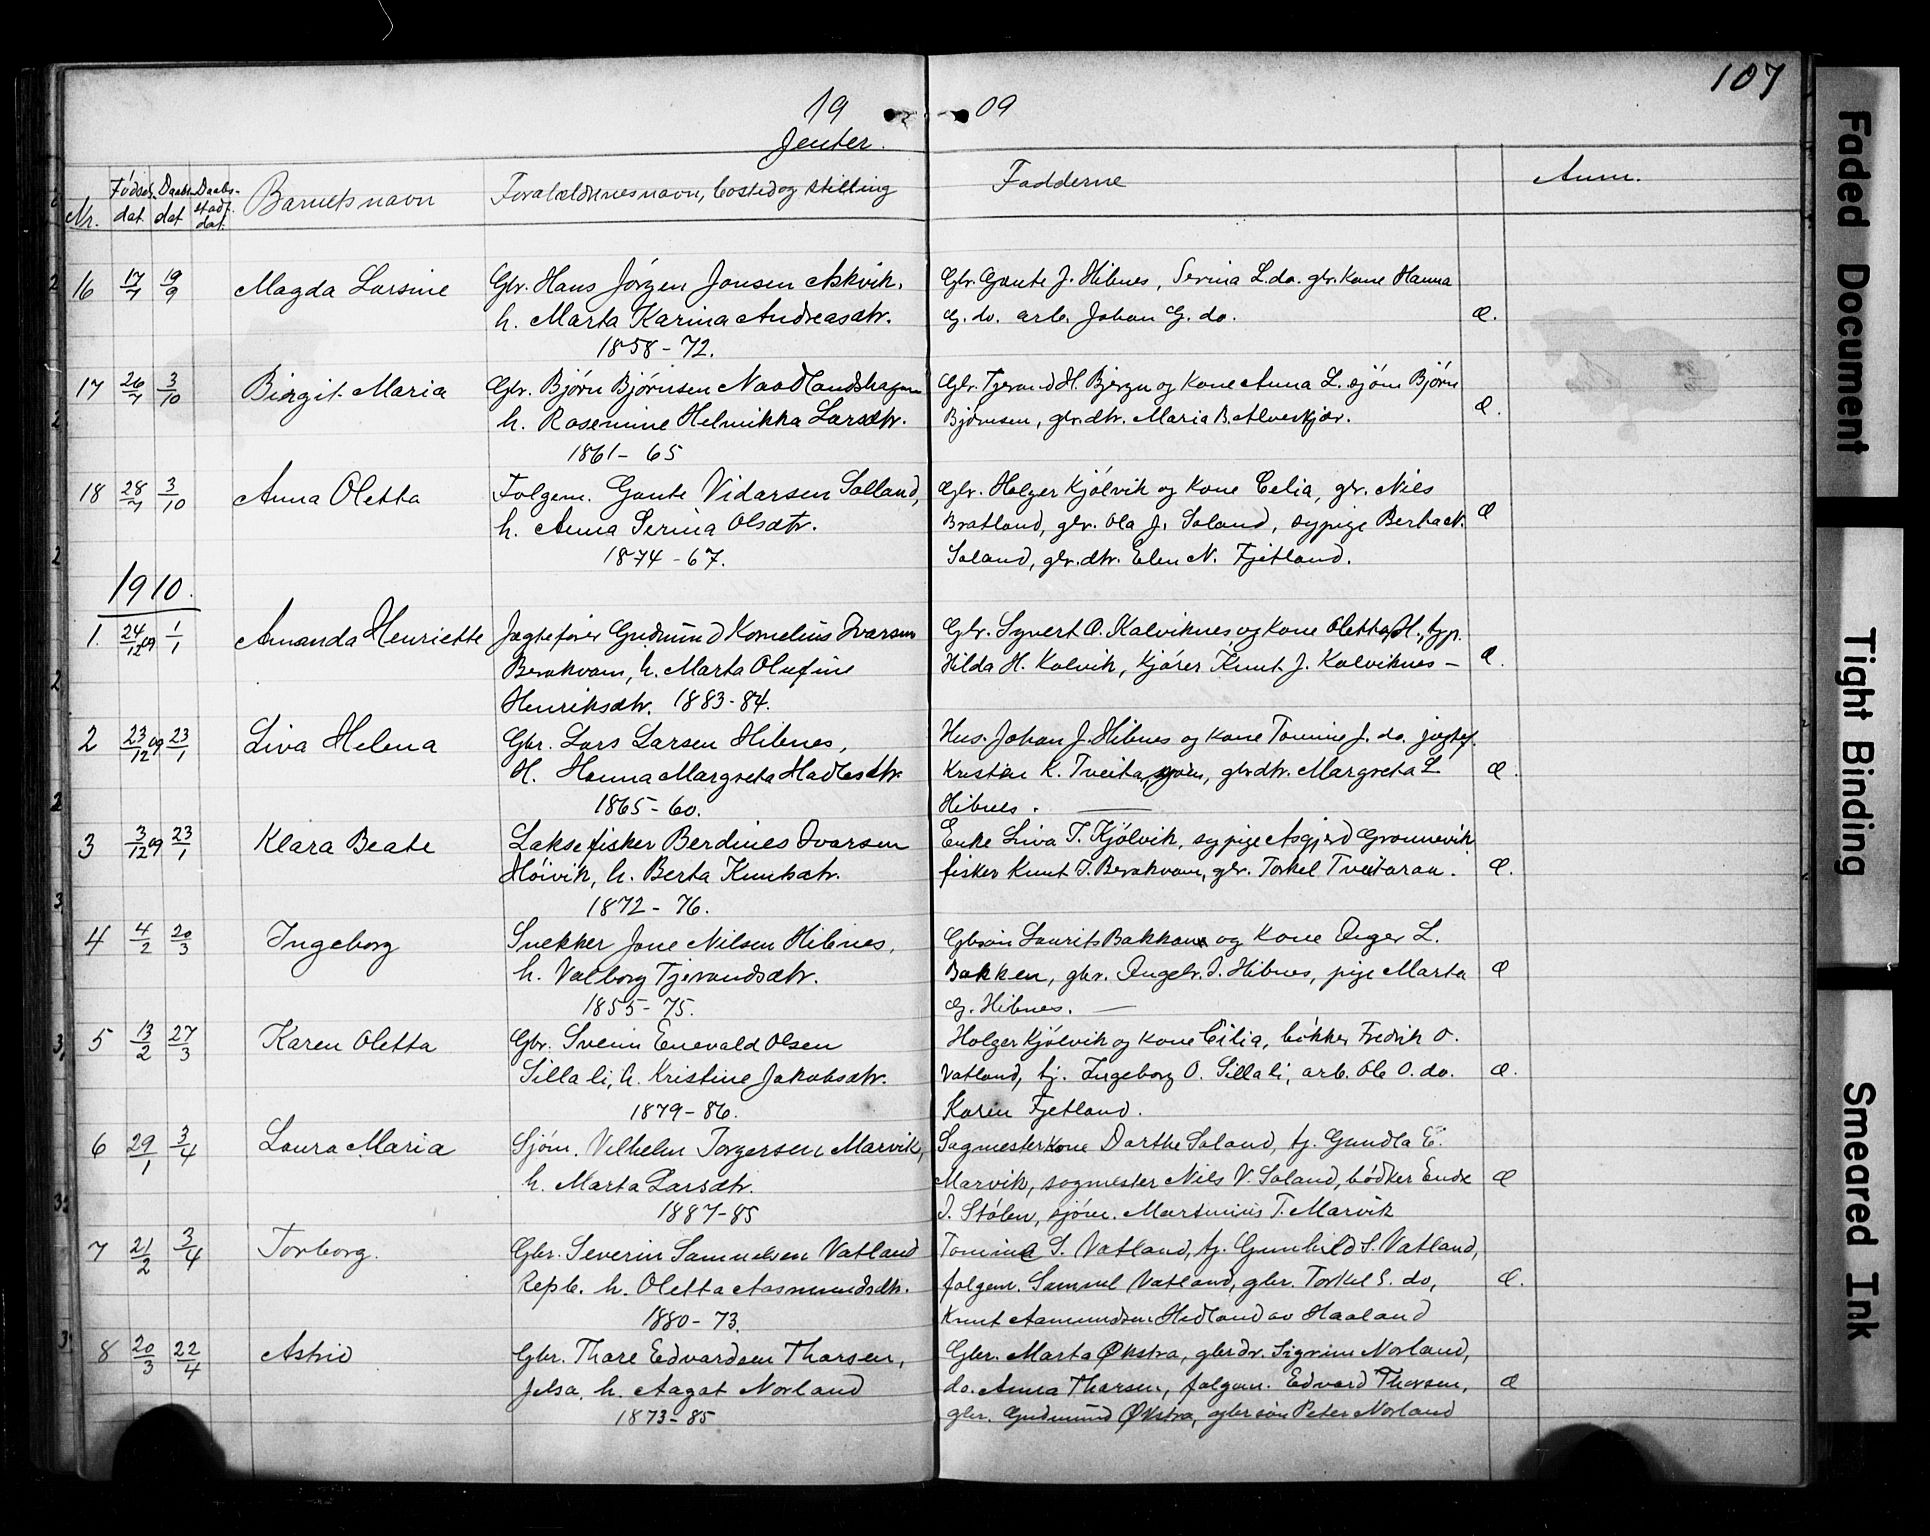 107
19 09
Jenter.
Nr. Fødsels dat. Daabs dat Daabs- stadf. dat. Barnets navn Forældrenes navn, bosted og stilling Fadderne Anm.
16 17/7 19/9 Magda Larsine Gbr. Hans Jørgen Jonsen Askvik, Gbr. Gaute J. Hibnes, Serina L. do. gbr. kone Hanna
h. Marta Karina Andreasdtr. G. do. arb. Johan G. do. Æ.
1858-72.
17 26/7 3/10 Birgit Maria Gbr. Bjørn Bjørnsen Naadlandshagen Gbr. Tjerand H. Bjergu og kone Anna L. sjøm Bjørn
h. Rosemine Helmikka Larsdtr. Bjørnsen, gbr.dtr. Maria B. Alverkjær. Æ.
1861-65
18 28/7 3/10 Anna Oletta Folgem. Gaute Vidarsen Solland, Gbr. Holger Kjølvik og kone Celia, gbr. Nils
h. Anna Serina Olsdtr. Bratland, gbr. Ola J. Soland, sypige Berta N. Æ
1874-67. Soland, gbr.dtr. Elen N. Fjetland.
1910.
1. 24/12 09 1/1 Amanda Henriette Jægtefører Gudmund Kornelius Ivarsen Gbr. Syvert O. Kalviknes og kone Oletta H., typ.
Berakvam, h. Marta Olufine Hilda H. Kolvik, kjører Knut J. Kalviknes - Æ.
Henriksdtr. 1883-84.
2 23/12 09 23/1 Liva Helena Gbr. Lars Larsen Hibnes, Hus. Johan J. Hibnes og kone Tomine J. do. jægtef.
H. Hanna Margreta Hadlesdtr. Kristen K. Tveita, gbrdtr. Margreta L. Æ.
1865-60. Hibnes.
3 3/12 09 23/1 Klara Beate Laksefisker Berdines Ivarsen Enke Liva T. Kjølvik, sypige Asgjerd Gronnevik
Høivik, h. Berta Knutsdtr. fisker Knut I. Berakvam, gbr. Torkel Tveitaraa. Æ.
1872-76.
4 4/2 20/3 Ingeborg Snekker Jone Nilsen Hibnes, Gbsøn Laurits Bakkane og kone Inger L.
h. Valborg Tjerandsdtr. Bakken, gbr. Ingebr. I. Hibnes, pige Marta Æ
1855-75. G. Hibnes.
5 13/2 27/3 Karen Oletta Gbr. Svein Enevald Olsen Holger Kjølvik og kone Cilia, bøkker Fredrik O.
Sillali, h. Kristine Jakobsdtr. Vatland, tj. Ingeborg O. Sillali, arb. Ole O. do. Æ.
1879-86. Karen Fjetland.
6 29/1 3/4 Laura Maria Sjøm. Vilhelm Torgersen Marvik, Sagmesterkone Darthe Soland, tj. Gundla E.
h. Marta Larsdtr. Marvik, sagmester Nils V. Soland, bødker Endre Æ
1887-85 I. Stølen, sjøm. Martinius T. Marvik
7 21/2 3/4 Torborg. Gbr. Severin Samuelsen Vatland Tomine S. Vatland, tj. Gunhild S. Vatland,
Repb. h. Oletta Aasmundsdtr. folgem. Samuel Vatland, gbr. Torkel S. do, Æ.
1880-73. Knut Aamundsen Hedland av Haaland
8 20/3 22/4 Astrid Gbr. Thore Edvardsen Thorsen, Gbr. Marta Økstra, gbrdr. Sigrim Norland,
Jelsa, h. Aagat Norland do. Anna Thorsen, folgem. Edvard Thorsen, Æ
1873-85 gbr. Gudmund Økstra, gbrsøn Peter Norland
Faded Document
Tight Binding
Smeared Ink